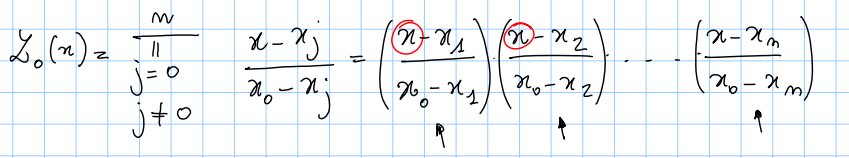 L₀(x) = ∏ⁿ_{j=0, j≠0} (x - x_j)/(x₀ - x_j) = ((x - x₁)/(x₀ - x₁)) · ((x - x₂)/(x₀ - x₂)) · ... · ((x - xₙ)/(x₀ - xₙ))